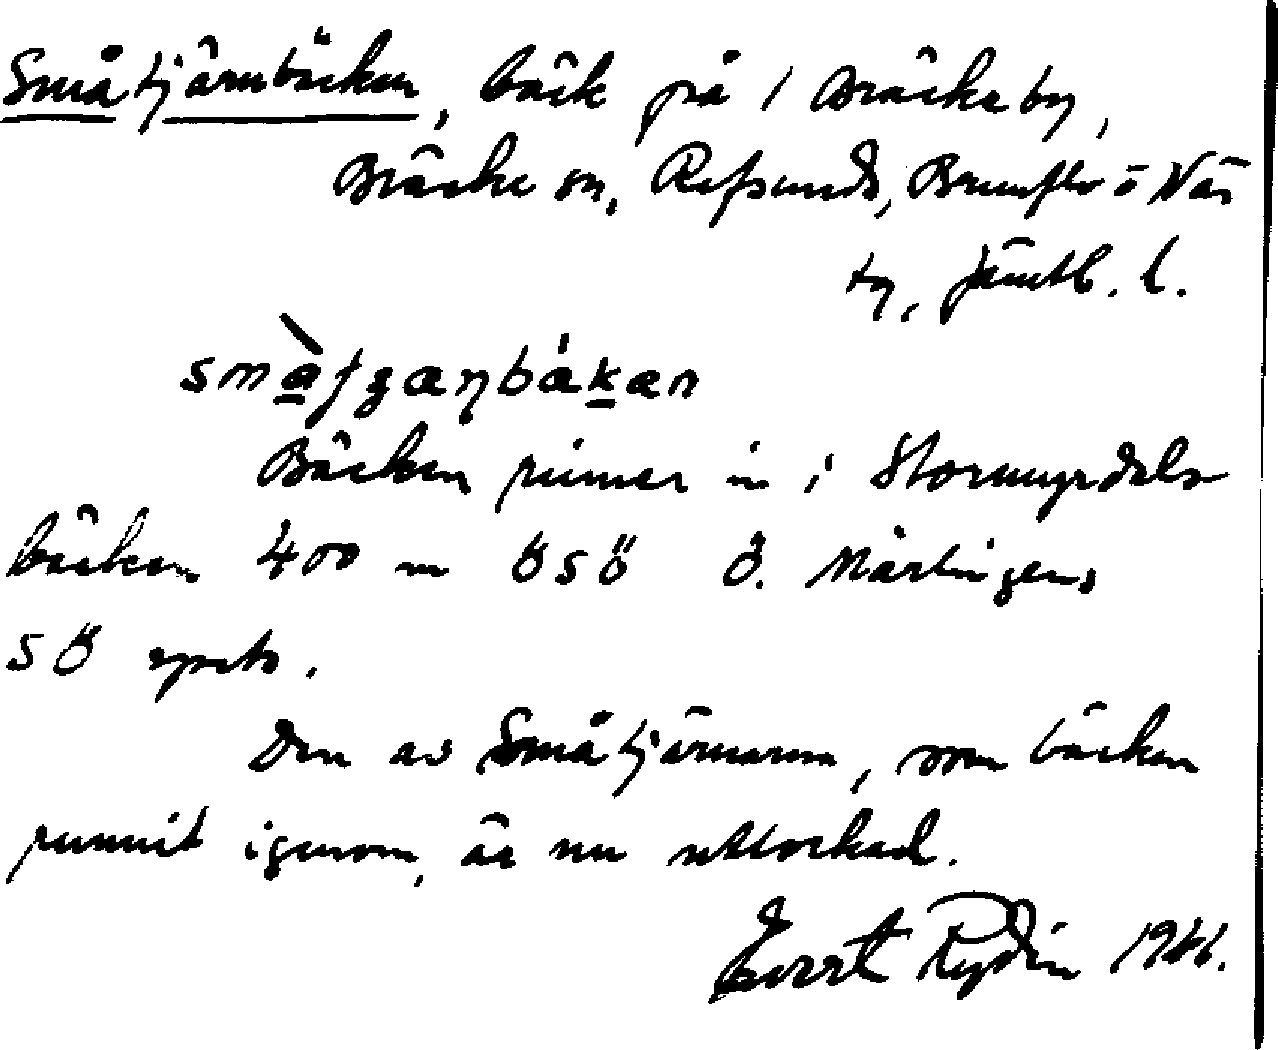 Småtjärnbäcken, bäck på 1 Bräcke by,
Bräcke sn, Refsunds, Brunflo o Näs
tg, Jämtl. l.
Bäcken rinner in i Stormyrdals
bäcken 400 m ÖSÖ Ö. Mårtingens
SÖ spets.
Den av Småtjärnarna, som bäcken
runnit igenom, är nu uttorkad.
Evert Rydin